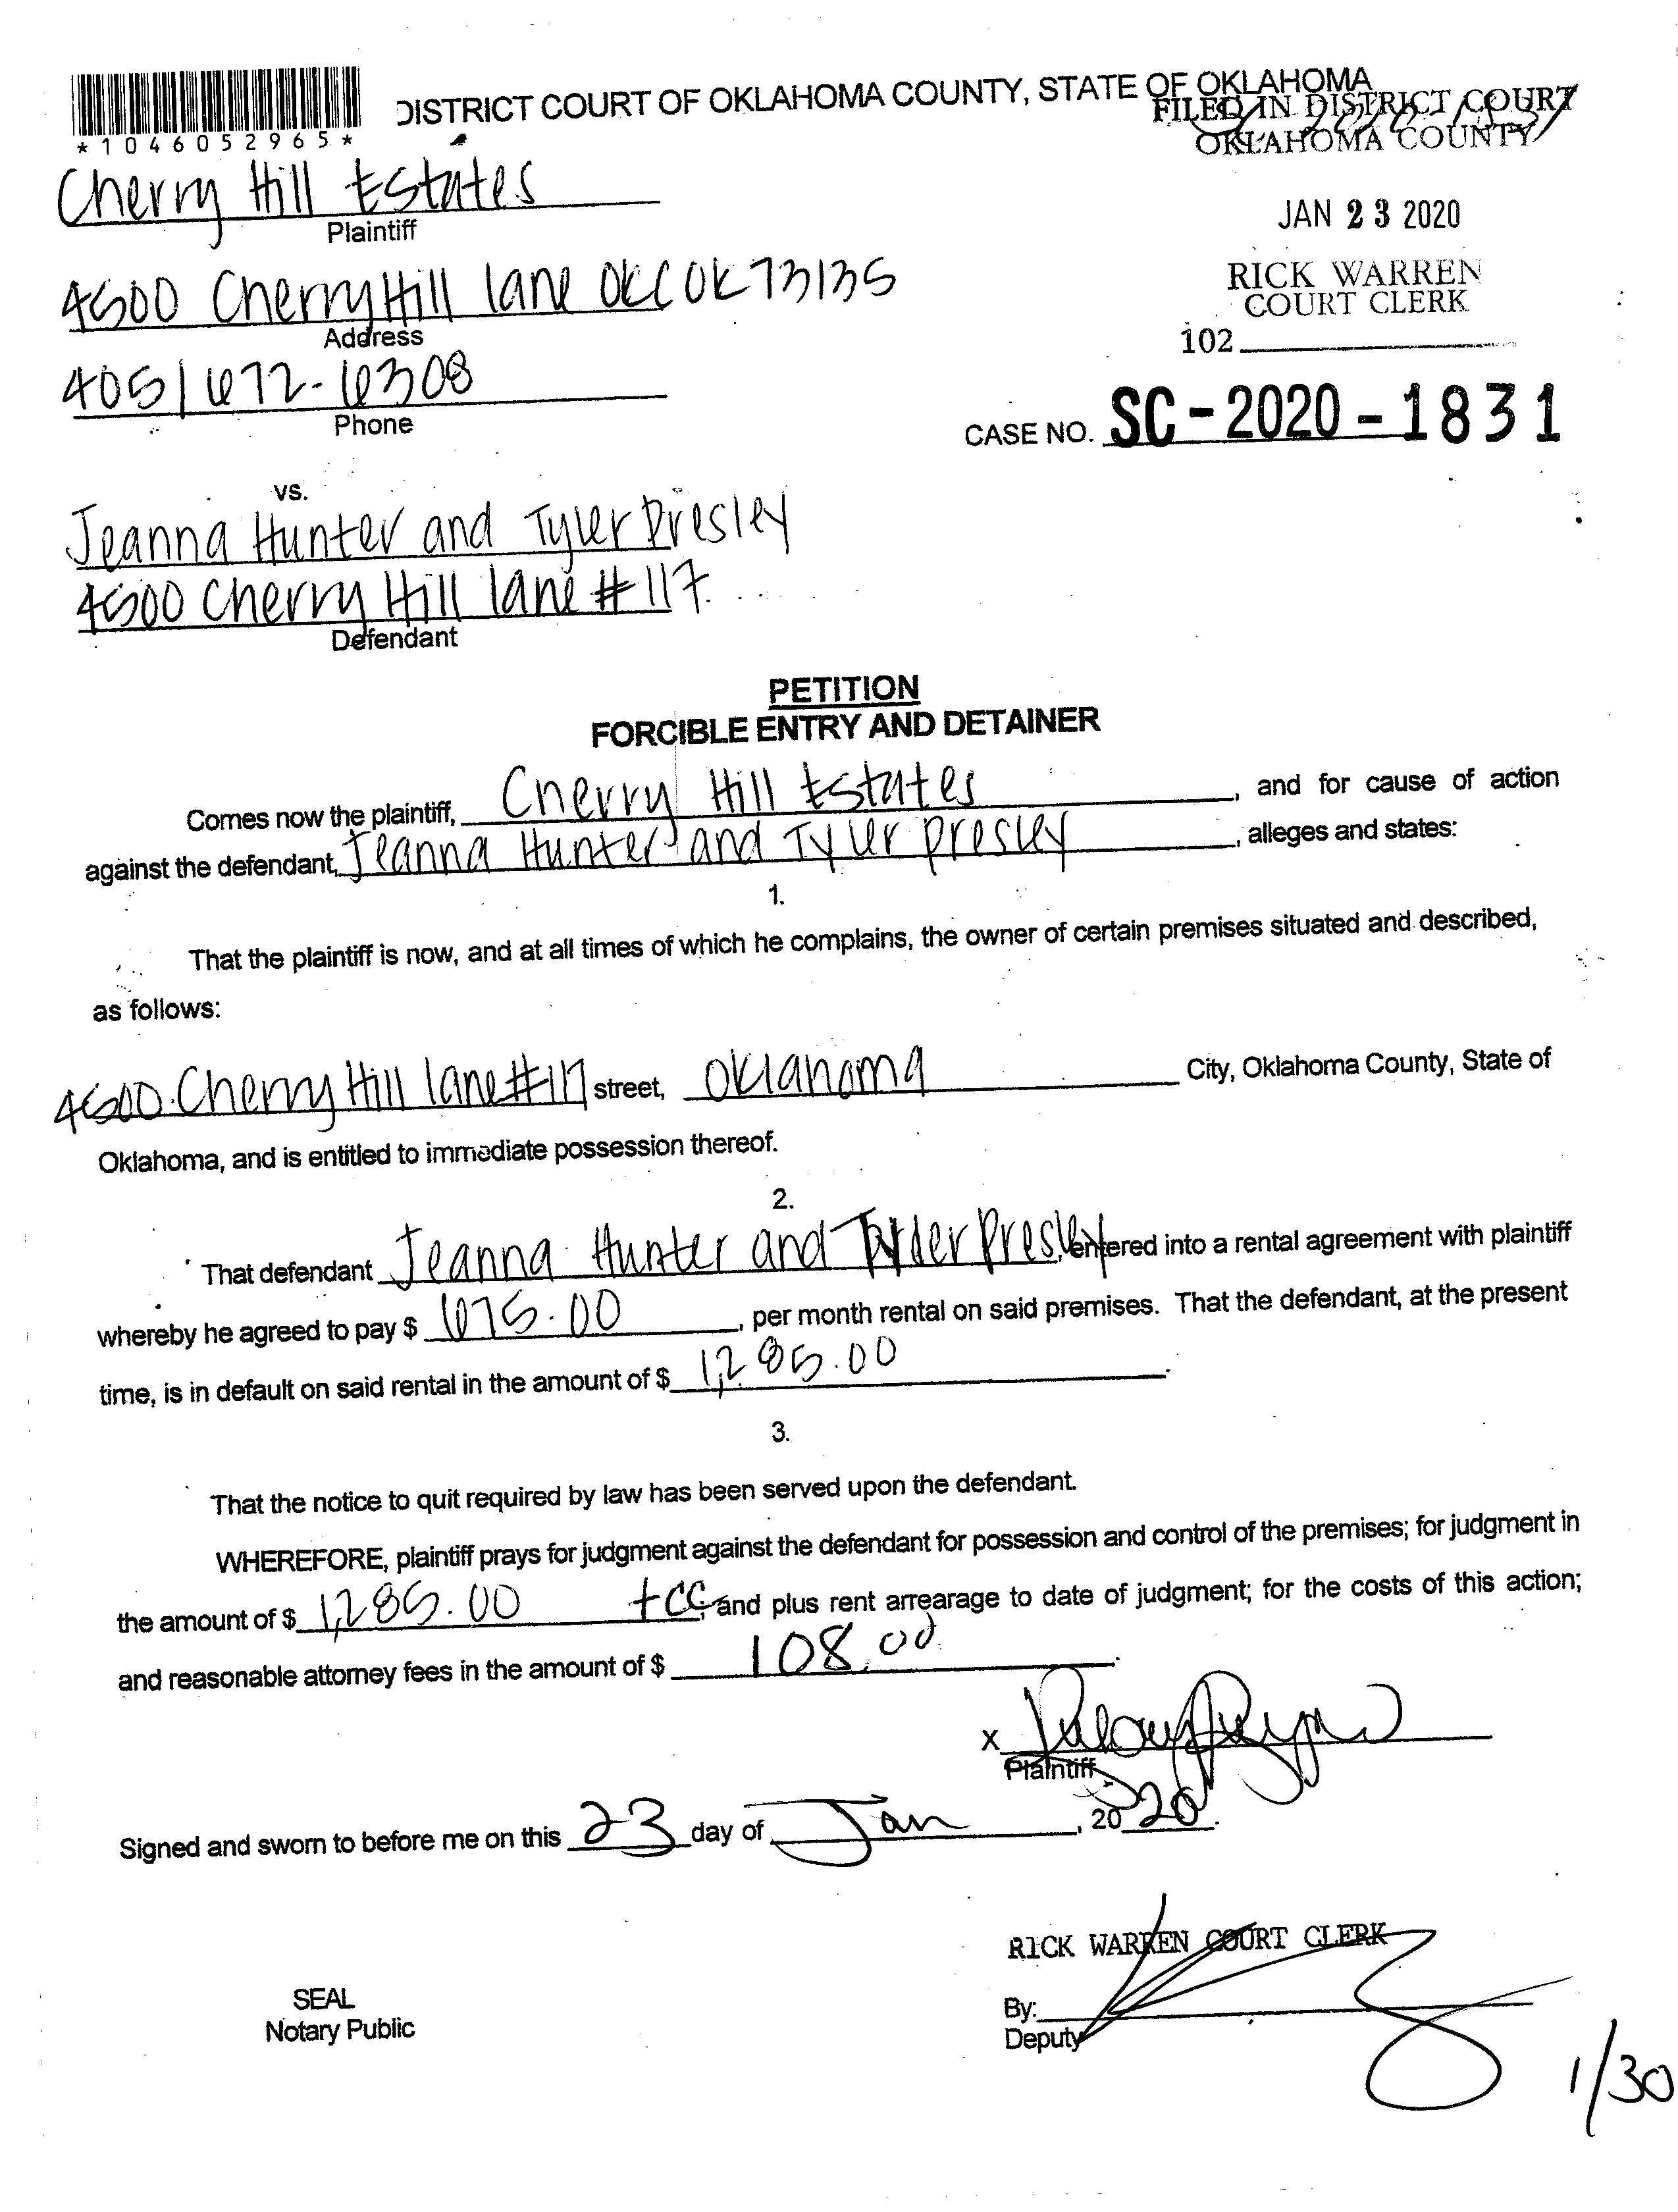 *1046052965*
DISTRICT COURT OF OKLAHOMA COUNTY, STATE OF OKLAHOMA
FILED IN DISTRICT COURT
OKLAHOMA COUNTY
Cherry Hill Estates
Plaintiff
JAN 23 2020
4500 Cherry Hill lane OKC OK 73135
Address
RICK WARREN
COURT CLERK
102
405/672-6308
Phone
CASE NO. SC-2020-1831
vs.
Jeanna Hunter and Tyler Presley
4500 Cherry Hill lane #117
Defendant
PETITION
FORCIBLE ENTRY AND DETAINER
Comes now the plaintiff, Cherry Hill Estates, and for cause of action
against the defendant, Jeanna Hunter and Tyler presley, alleges and states:
1.
That the plaintiff is now, and at all times of which he complains, the owner of certain premises situated and described,
as follows:
4500 Cherry Hill lane #117 street, Oklahoma City, Oklahoma County, State of
Oklahoma, and is entitled to immediate possession thereof.
2.
That defendant Jeanna Hunter and Tyler Presley, entered into a rental agreement with plaintiff
whereby he agreed to pay $ 675.00, per month rental on said premises. That the defendant, at the present
time, is in default on said rental in the amount of $ 1,285.00.
3.
That the notice to quit required by law has been served upon the defendant.
WHEREFORE, plaintiff prays for judgment against the defendant for possession and control of the premises; for judgment in
the amount of $ 1,285.00 +CC, and plus rent arrearage to date of judgment; for the costs of this action;
and reasonable attorney fees in the amount of $ 108.00.
X
Plaintiff
Signed and sworn to before me on this 23 day of Jan, 2020.
RICK WARREN COURT CLERK
SEAL
Notary Public
By:
Deputy
1/30